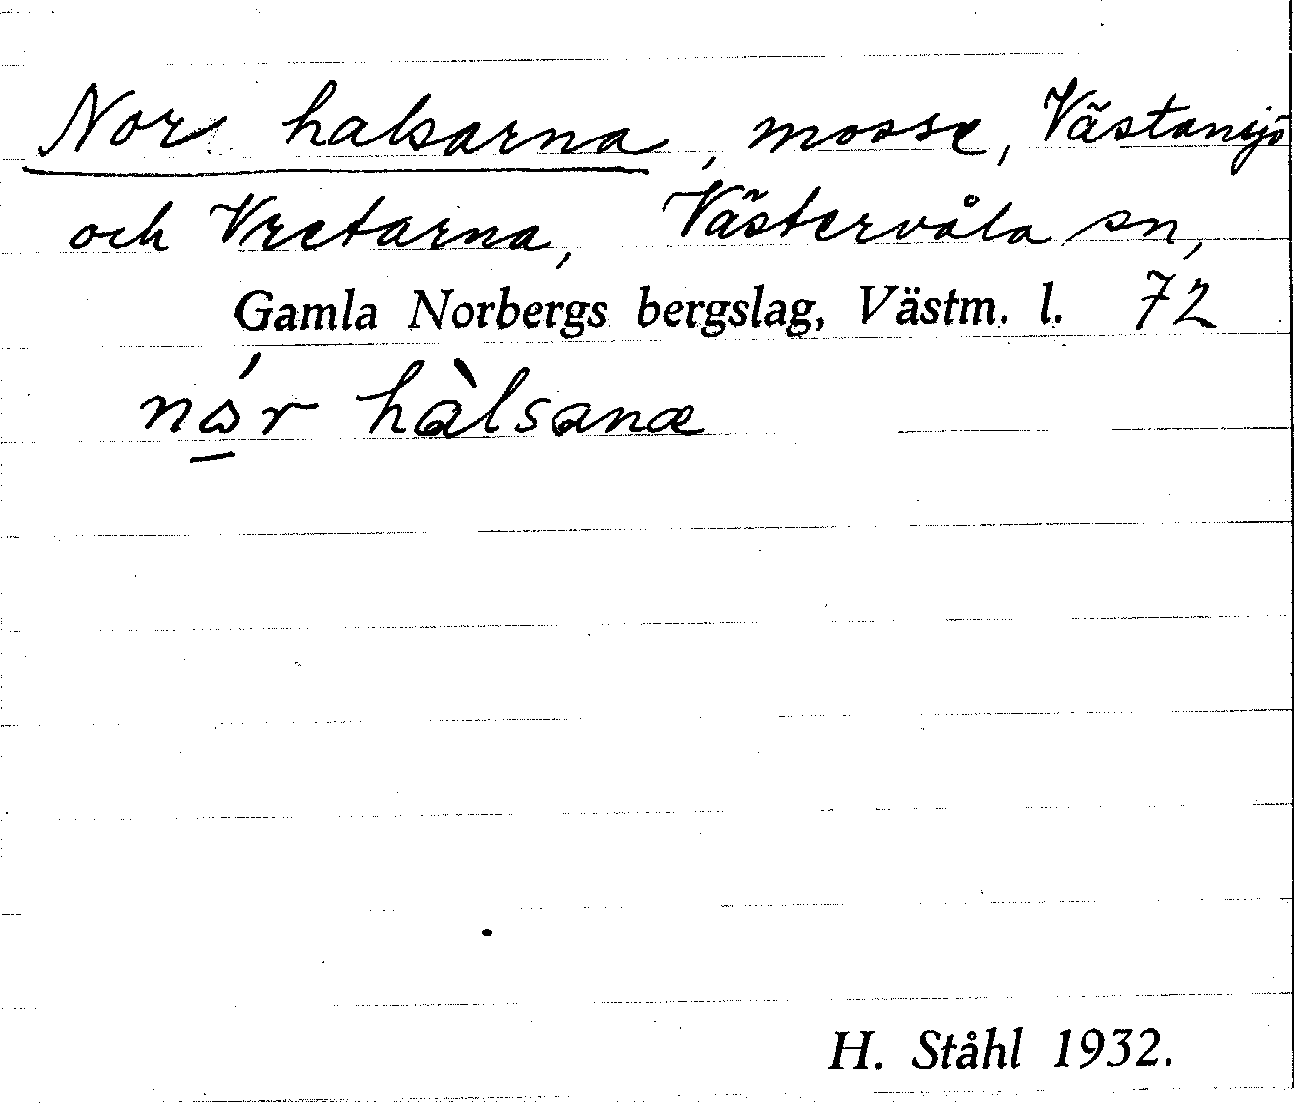 Nor halsarna, mosse, Västansjö
och Vretarna, Västervåla sn,
Gamla Norbergs bergslag, Västm. l. 72
nór hàlsanæ
H. Ståhl 1932.